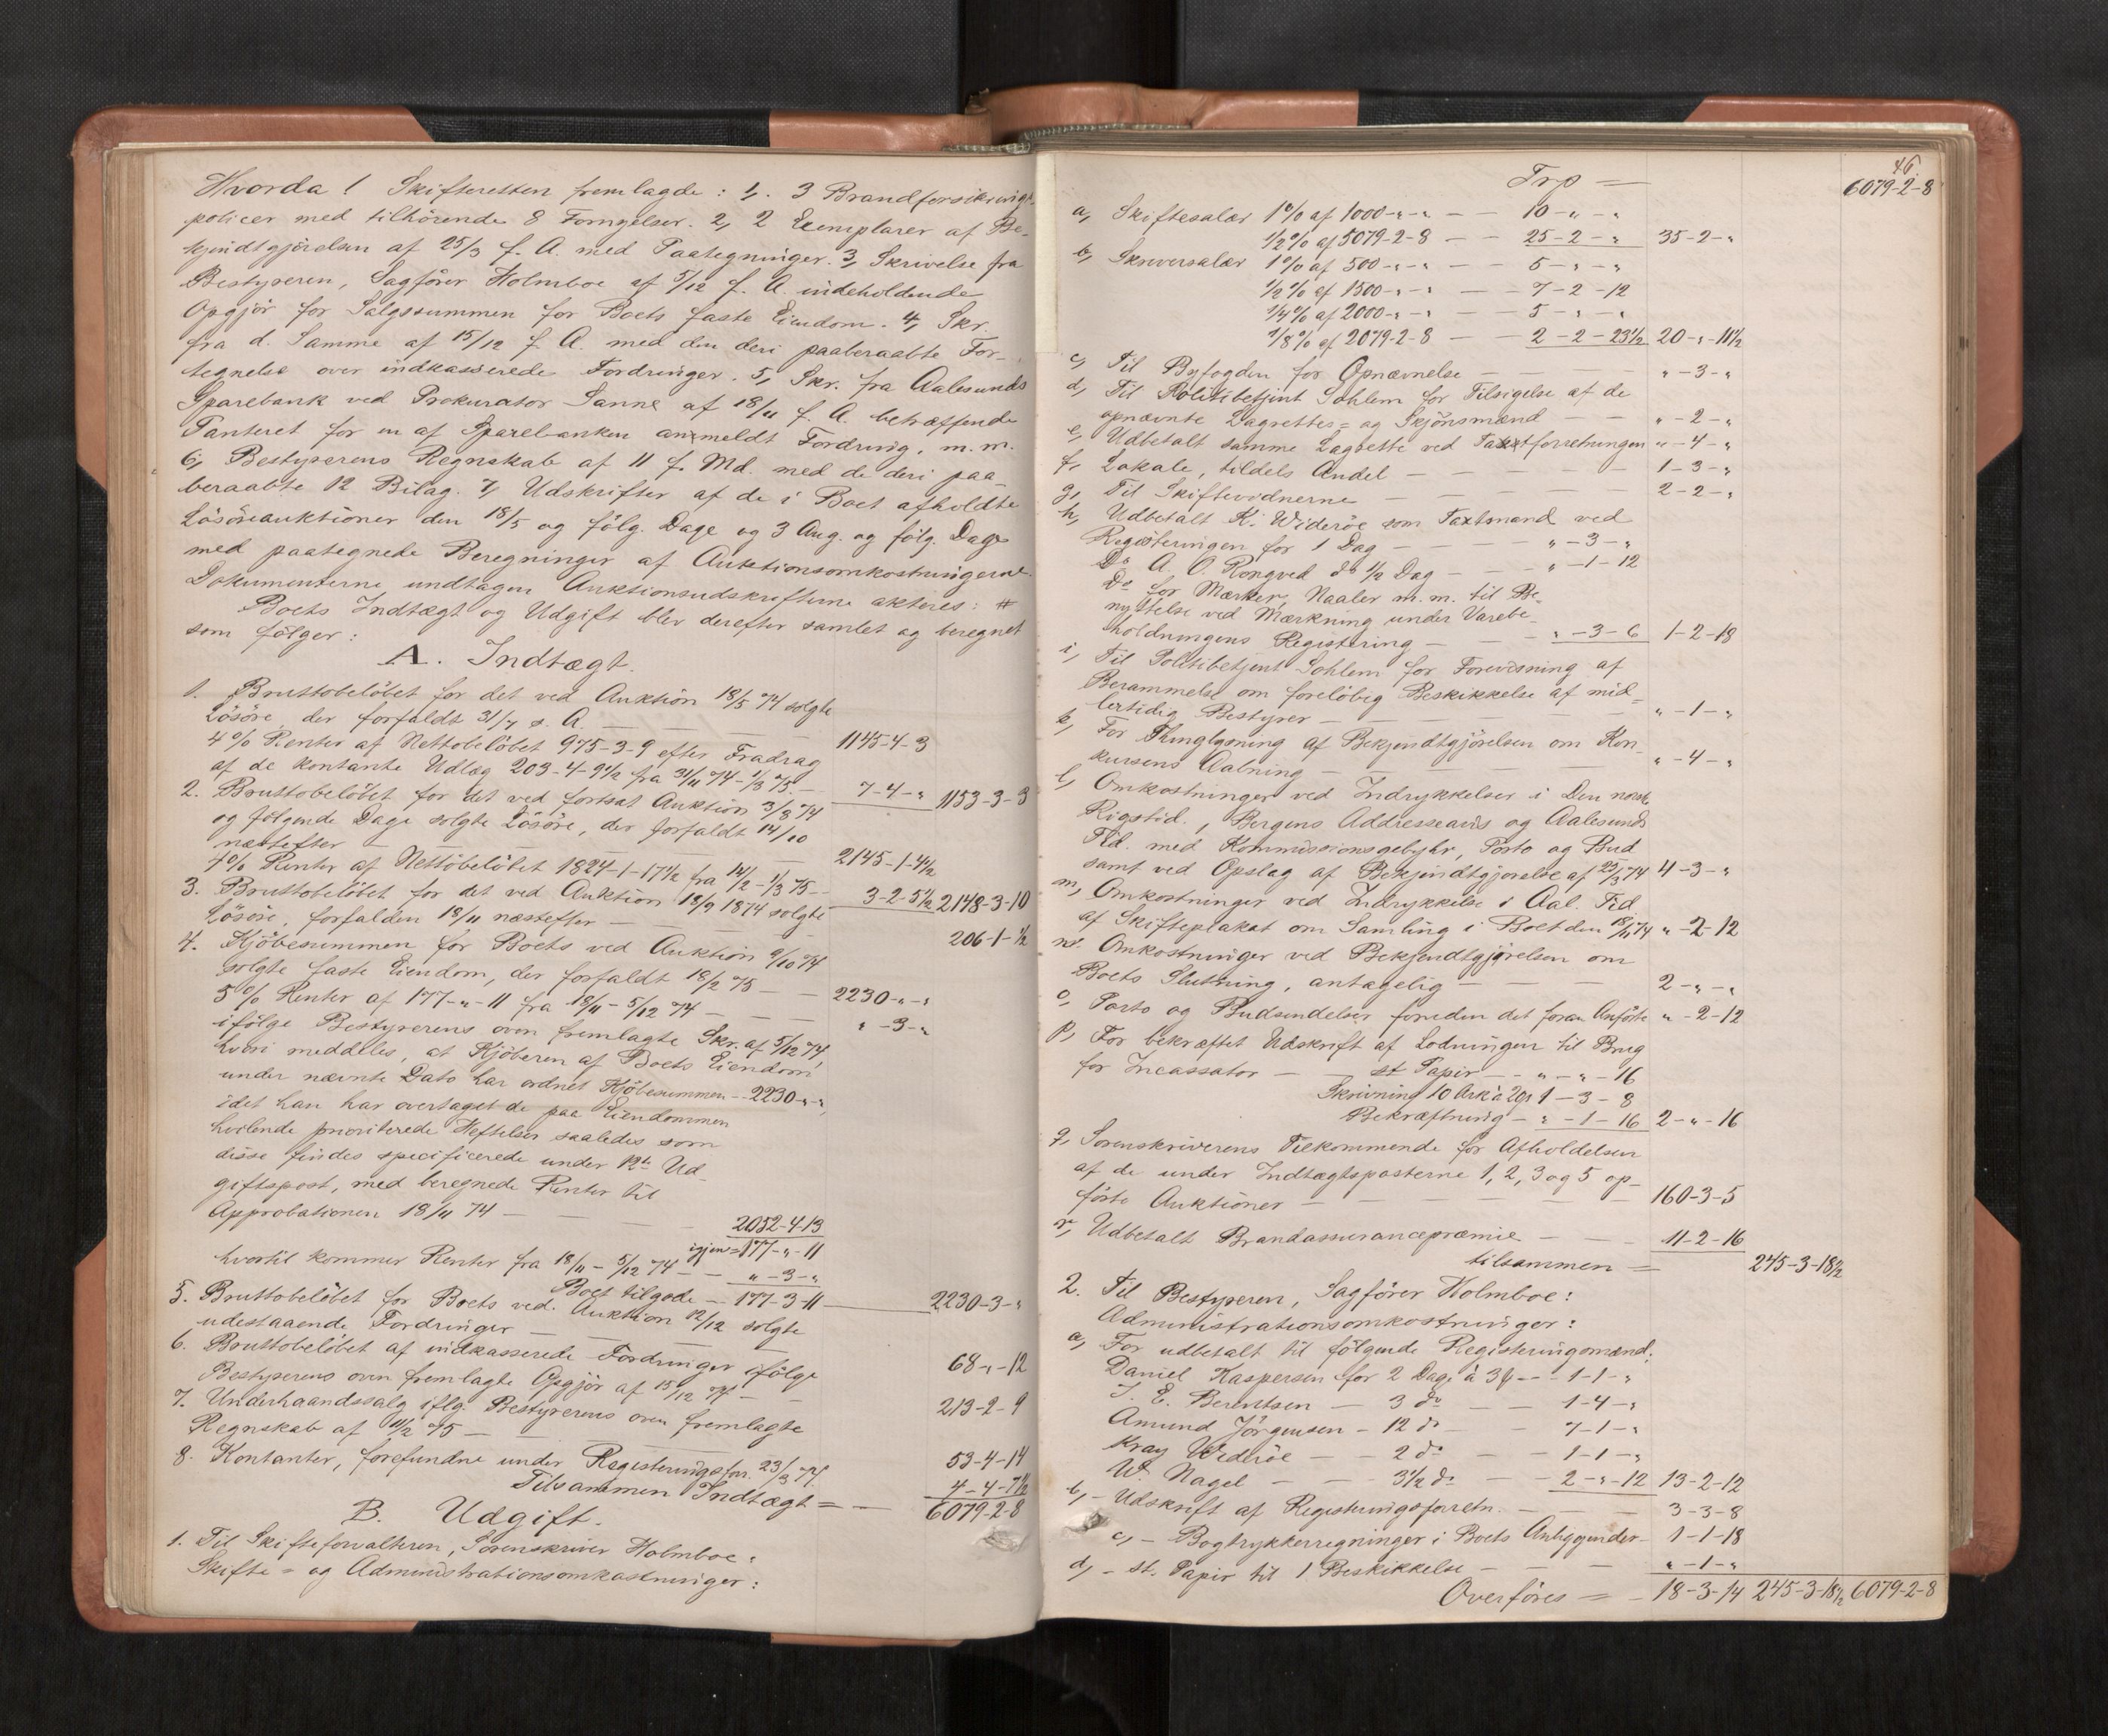 Hvorda i Skifteretten fremlagde: 1, 3 Brandforsikrings-
policer med tilhörende 8 Fornyelser. 2, 2 Exemplarer af Be-
kjendtgjörelsen af 25/3 f. A. med Paategninger. 3, Skrivelse fra
Bestyreren, Sagförer Holmboe af 5/12 f. A. indeholdende
Opgjör for Salgssummen for Boets faste Eiendom. 4, Skr.
fra d. Samme af 15/12 f. A. med den deri paaberaabte For-
tegnelse over indkasserede Fordringer. 5, Skr. fra Aalesunds
Sparebank ved Prokurator Sanne af 18/11 f. A. betræffende
Panteret for en af Sparebanken anmeldt Fordring, m. m.
6, Bestyrerens Regnskab af 11 f. Md. med de deri paa-
beraabte 12 Bilag. 7, Udskrifter af de i Boet afholdte
Lösöreauktioner den 18/5 og fölg. Dage og 3 Aug. og fölg. Dage
med paategnede Beregninger af Auktionsomkostningerne.
Dokumenterne undtagen Auktionsudskrifterne akteres: #
Boets Indtægt og Udgift blev derefter samlet og beregnet
som fölger:
A. Indtægt.
1. Bruttobelöbet for det ved Auktion 18/5 74 solgte
Lösöre, der forfaldt 31/7 s. A. — 1145-4-3
4% Renter af Nettobelöbet 975-3-9 efter Fradrag
af de kontante Udlæg 203-4-9½ fra 31/11 74 - 1/3 75. — 7-4-" 1153-3-3
2. Bruttobelöbet for det ved fortsat Auktion 3/8 74
og fölgende Dage solgte Lösöre, der forfaldt 14/10
næstefter — 2145-1-4½
4% Renter af Nettobelöbet 1824-1-17½ fra 14/2 - 1/3 75 — 3-2-5½ 2148-3-10
3. Bruttobelöbet for det ved Auktion 18/9 1874 solgte
Lösöre, forfalden 18/11 næstefter — 206-1-½
4. Kjöbesummen for Boets ved Auktion 9/10 74
solgte faste Eiendom, der forfaldt 18/2 75 — 2230-"-"
5% Renter af 177-"-11 fra 18/11 - 5/12 74 — "-3-"
ifölge Bestyrerens oven fremlagte Skr. af 5/12 74,
hvori meddeles, at Kjöberen af Boets Eiendom
under nævnte Dato har ordnet Kjöbesummen — 2230-"-",
idet han har overtaget de paa Eiendommen
hvilende prioriterede Heftelser saaledes som
disse findes specificerede under 12te Ud-
giftspost, med beregnede Renter til
Approbationen 18/11 74 — 2052-4-13
igjen = 177-"-11
hvortil kommer Renter fra 18/11 - 5/12 74 — "-3-"
Boet tilgode — 177-3-11 — 2230-3-"
5. Bruttobelöbet for Boets ved Auktion 12/12 solgte
udestaaende Fordringer — 68-"-12
6. Bruttobelöbet af indkasserede Fordringer ifölge
Bestyrerens oven fremlagte Opgjör af 15/12 74 — 213-2-9
7. Underhaandssalg iflg. Bestyrerens oven fremlagte
Regnskab af 11/2 75 — 53-4-14
8. Kontanter, forefundne under Registeringsforr. 23/3 74 4-4-7½
Tilsammen Indtægt = — 6079-2-8
B. Udgift.
1. Til Skifteforvalteren, Sorenskriver Holmboe:
Skifte- og Administrationsomkostninger:
46.
Trp = 6079-2-8
a, Skiftesalær 1% af 1000-"-" — 10-"-"
½% af 5079-2-8 — 25-2-" 35-2-"
b, Skriversalær 1% af 500-"-" — 5-"-"
½% af 1500-"-" — 7-2-12
¼% af 2000-"-" — 5-"-"
1/8% af 2079-2-8 — 2-2-23½ 20-"-11½
c, Til Byfogden for Opnævnelse — "-3-"
d, Til Politibetjent Sohlem for Tilsigelse af de
opnævnte Lagrettes- og Skjönsmænd — "-2-"
e, Udbetalt samme Lagrette ved Taxtforretningen "-4-"
f, Lokale, tildels Andel — 1-3-"
g, Til Skiftevidnerne — 2-2-"
h, Udbetalt K. Wideröe som Taxtmand ved
Registeringen for 1 Dag — "-3-"
Do A. O. Rongved do ½ Dag — "-1-12
Do for Mærker, Naaler m. m. til Be-
nyttelse ved Mærkning under Varebe-
holdningens Registering — "-3-6 1-2-18
i, Til Politibetjent Sohlem for Forevisning af
Berammelse om foreløbig Beskikkelse af mid-
lertidig Bestyrer — "-1-"
k, For Thinglysning af Bekjendtgjörelsen om Kon-
kursens Aabning — "-4-"
l, Omkostninger ved Indrykkelser i Den norske
Rigstid., Bergens Addresseavis og Aalesunds
Tid. med Kommissionsgebyhr, Porto og Bud
samt ved Opslag af Bekjendtgjörelse af 25/3 74 4-3-"
m, Omkostninger ved Indrykkelse i Aal. Tid.
af Skifteplakat om Samling i Boet den 18/11 74 "-2-12
n, Omkostninger ved Bekjendtgjörelsen om
Boets Slutning, antagelig — 2-"-"
o, Porto og Budsendelser foruden det foran Anförte "-2-12
p, For bekræftet Udskrift af Lodningen til Brug
for Incassator — st. Papir — "-"-16
Skrivning 10 Ark à 20ß 1-3-8
Bekræftning — "-1-16 2-"-16
q, Sorenskriverens Tilkommende for Afholdelsen
af de under Indtægtsposterne 1, 2, 3 og 5 op-
förte Auktioner — 160-3-5
r, Udbetalt Brandassurancepræmie — 11-2-16
tilsammen = 245-3-18½
2. Til Bestyreren, Sagförer Holmboe:
Administrationsomkostninger:
a, For udbetalt til fölgende Registeringsmænd:
Daniel Kaspersen for 2 Dage à 3ß — 1-1-"
J. E. Berentsen — 3 do — 1-4-"
Amund Jörgensen — 12 do 7-1-"
Kray Wideröe — 2 do — 1-1-"
W. Nagel — 3½ do — 2-"-12 13-2-12
b, - Udskrift af Registeringsforretn. — 3-3-8
c, - Bogtrykkerregninger i Boets Anliggender — 1-1-18
d, - st. Papir til 1 Beskikkelse — "-1-"
Overföres = — 18-3-14 245-3-18½ 6079-2-8